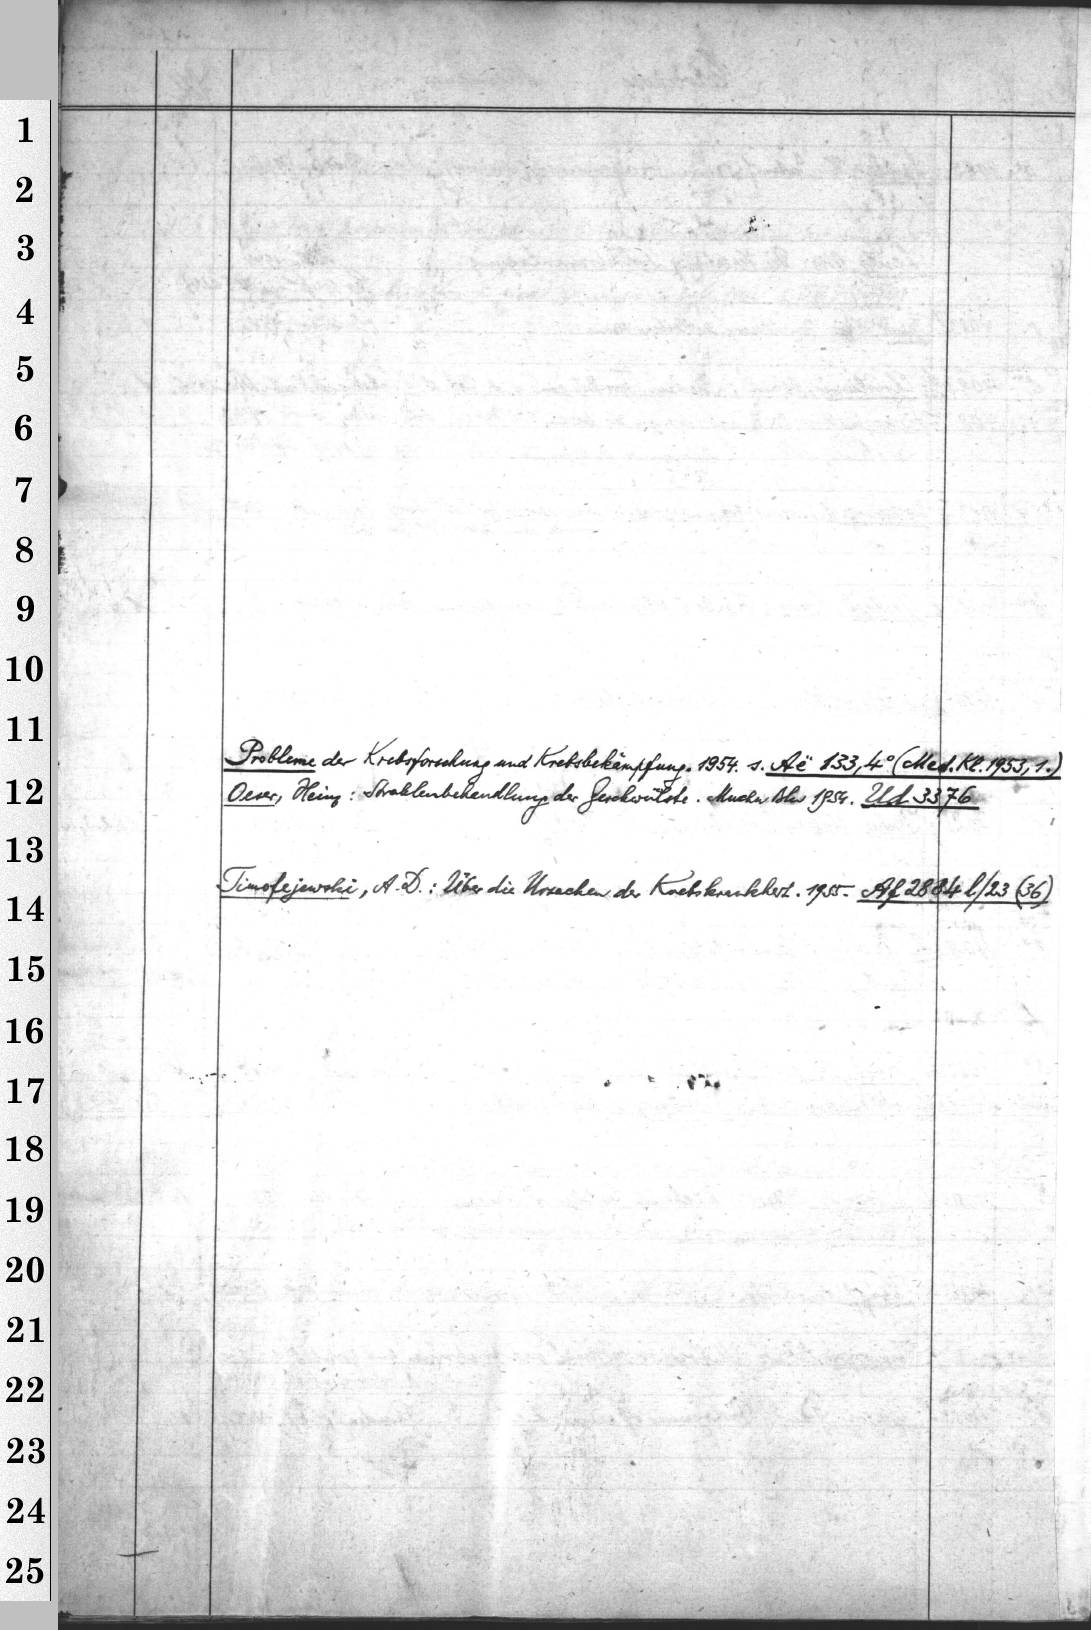 1
2
3
4
5
6
7
8
9
10
11
Probleme der Krebsforschung und Krebsbekämpfung. 1954. s. Aë 133,4° (Med. Kl. 1953, 1.)
12
Oeser, Heinz: Strahlenbehandlung der Geschwülste. Mchn Bln 1954. Ud 3376
13
Timofejewski, A. D.: Über die Ursachen der Krebskrankheit. 1955. Af 2884 l/23 (36)
14
15
16
17
18
19
20
21
22
23
24
25